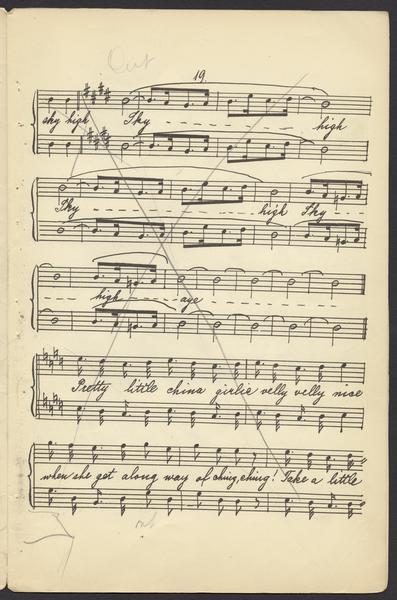 Out
19.
sky high Sky - - - - - - high
Sky - - - - - - - - - high Sky - - -
- - - high - - - - aye - - - - - - - -
Pretty little china girlie velly velly nice
when she get along way of ching, ching! Take a little
out